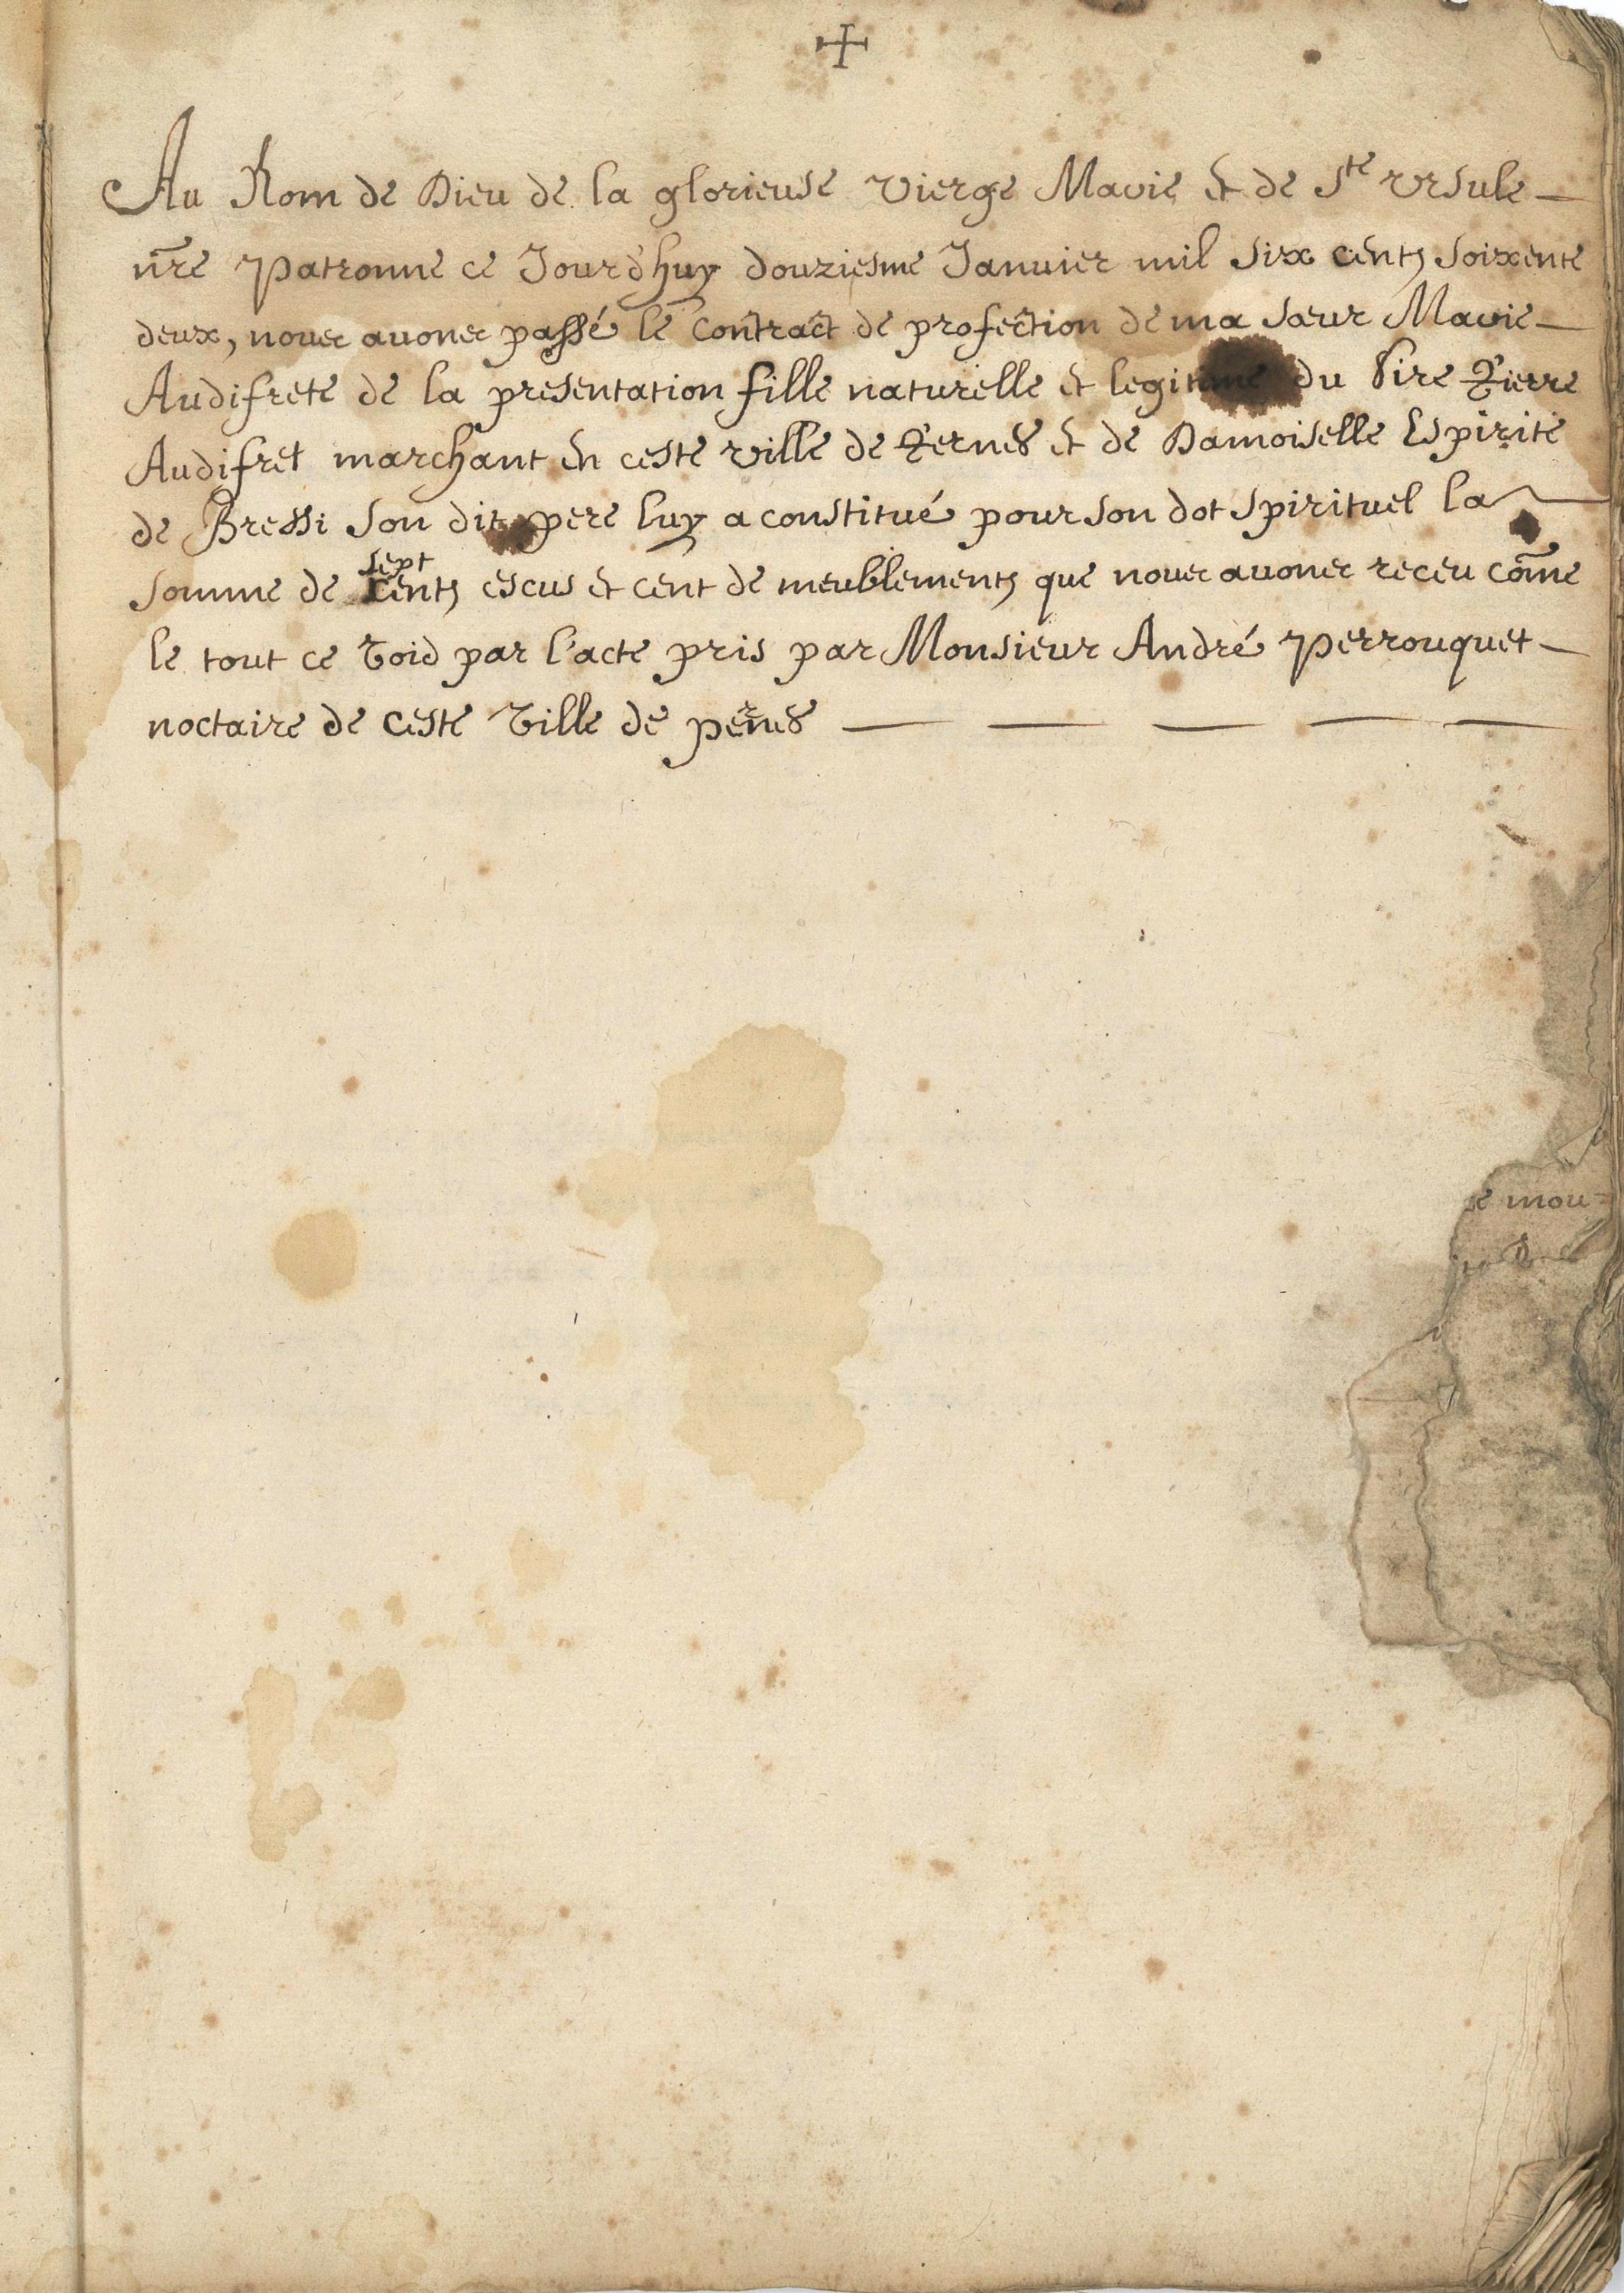 Au Nom de Dieu de la glorieuse vierge Marie et de Ste Ursule
nre Patronne ce Jourdhuy douziesme Januier mil six cents soixente
deux, nous auons passé le contract de profection de ma sœur Marie
Audifrete de la presentation fille naturelle et legitime du Sire Pierre
Audifret marchant en ceste ville de Pernes et de Damoiselle Espirite
de Bressi son dit pere luy a constitué pour son dot spirituel la
sept
somme de cents escus et cent de meublements que nous auons receu come
le tout ce void par l'acte pris par Monsieur André Perrouquet
noctaire de ceste Ville de pernes
se mou=